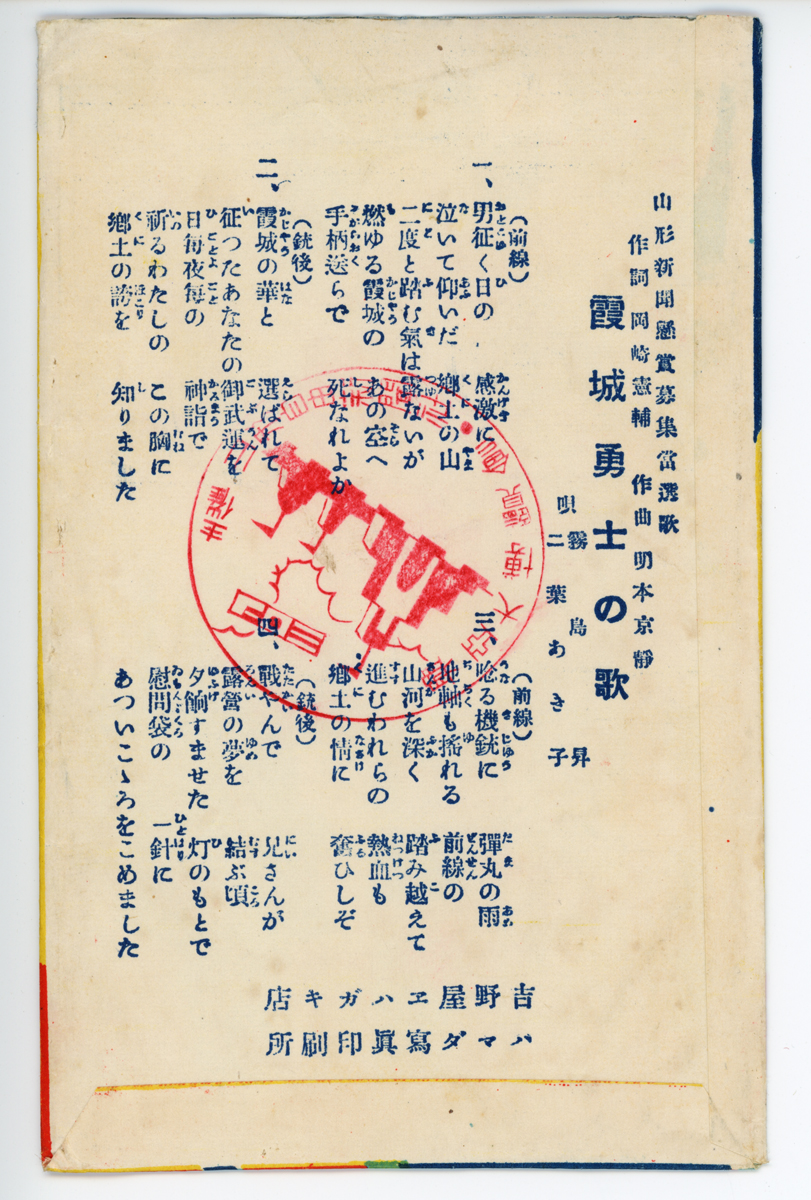 山形新聞懸賞募集當選歌
作詞岡崎憲輔 作曲明本京靜
霞城勇士の歌
唄 霧島昇
二葉あき子
一、(前線)
男征く日の 感激に
泣いて仰いだ 鄕土の山
二度と踏む氣は 露ないが
燃ゆる霞城の あの空へ
手柄送らで 死なれよか
二、(銃後)
霞城の華と 選ばれて
征つたあなたの 御武運を
日每夜每の 神詣で
祈るわたしの この胸に
鄕土の誇を 知りました
三、(前線)
唸る機銃に 彈丸の雨
地軸も搖れる 前線の
山河を深く 踏み越えて
進むわれらの 熱血も
鄕土の情に 奮ひしぞ
四、(銃後)
戰やんで 兄さんが
露營の夢を 結ぶ頃
夕餉すませた 灯のもとで
慰問袋の 一針に
あついこゝろをこめました
吉野屋ヱハガキ店
ハマダ寫眞印刷所
主催